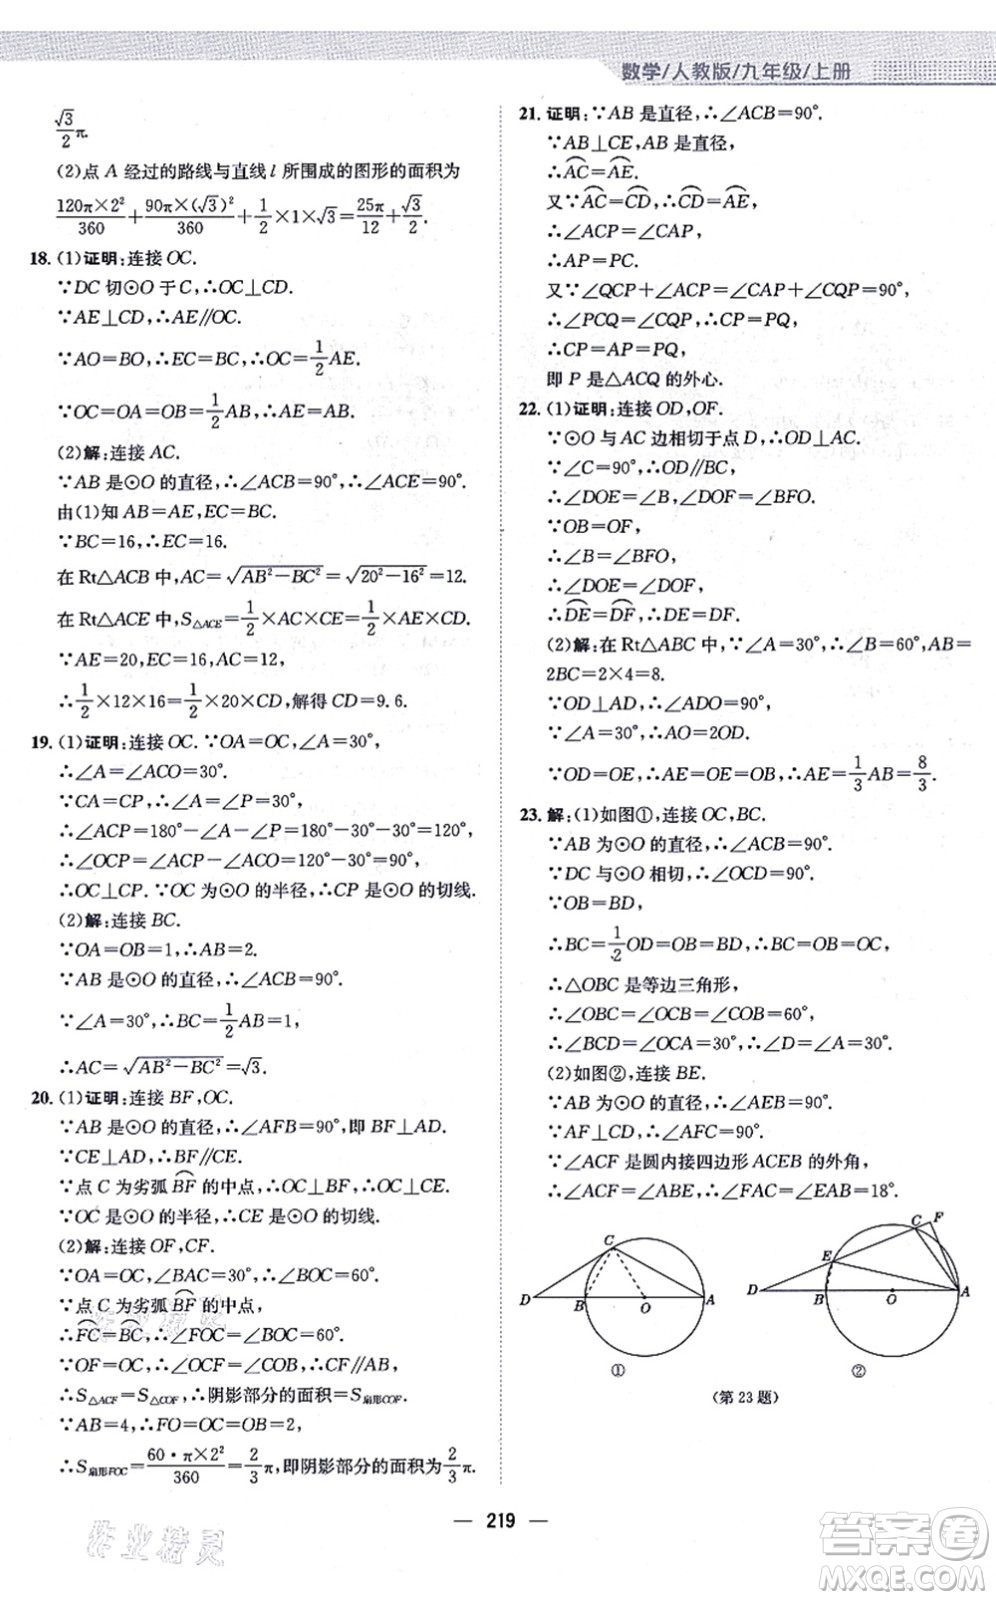 数学/人教版/九年级/上册
√3/2 π.
(2)点 A 经过的路线与直线 l 所围成的图形的面积为
120π×2²/360+90π×(√3)²/360+1/2×1×√3=25π/12+√3/2.
18. (1)证明:连接 OC.
∵DC 切⊙O 于 C,∴OC⊥CD.
∵AE⊥CD,∴AE∥OC.
∵AO=BO,∴EC=BC,∴OC=1/2 AE.
∵OC=OA=OB=1/2 AB,∴AE=AB.
(2)解:连接 AC.
∵AB 是⊙O 的直径,∴∠ACB=90°,∴∠ACE=90°.
由(1)知 AB=AE,EC=BC.
∵BC=16,∴EC=16.
在 Rt△ACB 中,AC=√(AB²-BC²)=√(20²-16²)=12.
在 Rt△ACE 中,S△ACE=1/2×AC×CE=1/2×AE×CD.
∵AE=20,EC=16,AC=12,
∴1/2×12×16=1/2×20×CD,解得 CD=9.6.
19. (1)证明:连接 OC.∵OA=OC,∠A=30°,
∴∠A=∠ACO=30°.
∵CA=CP,∴∠A=∠P=30°,
∴∠ACP=180°-∠A-∠P=180°-30°-30°=120°,
∴∠OCP=∠ACP-∠ACO=120°-30°=90°,
∴OC⊥CP.∵OC 为⊙O 的半径,∴CP 是⊙O 的切线.
(2)解:连接 BC.
∵OA=OB=1,∴AB=2.
∵AB 是⊙O 的直径,∴∠ACB=90°.
∵∠A=30°,∴BC=1/2 AB=1,
∴AC=√(AB²-BC²)=√3.
20. (1)证明:连接 BF,OC.
∵AB 是⊙O 的直径,∴∠AFB=90°,即 BF⊥AD.
∵CE⊥AD,∴BF∥CE.
∵点 C 为劣弧 BF⌒ 的中点,∴OC⊥BF,∴OC⊥CE.
∵OC 是⊙O 的半径,∴CE 是⊙O 的切线.
(2)解:连接 OF,CF.
∵OA=OC,∠BAC=30°,∴∠BOC=60°.
∵点 C 为劣弧 BF⌒ 的中点,
∴FC⌒=BC⌒,∴∠FOC=∠BOC=60°.
∵OF=OC,∴∠OCF=∠COB,∴CF∥AB,
∴S△ACF=S△COF,∴阴影部分的面积=S扇形COF.
∵AB=4,∴FO=OC=OB=2,
∴S扇形FOC=60·π×2²/360=2/3 π,即阴影部分的面积为 2/3 π.
21. 证明:∵AB 是直径,∴∠ACB=90°.
∵AB⊥CE,AB是直径,
∴AC⌒=AE⌒.
又∵AC⌒=CD⌒,∴CD⌒=AE⌒,
∴∠ACP=∠CAP,
∴AP=PC.
又∵∠QCP+∠ACP=∠CAP+∠CQP=90°,
∴∠PCQ=∠CQP,∴CP=PQ,
∴CP=AP=PQ,
即 P 是△ACQ 的外心.
22. (1)证明:连接 OD,OF.
∵⊙O 与 AC 边相切于点 D,∴OD⊥AC.
∵∠C=90°,∴OD∥BC,
∴∠DOE=∠B,∠DOF=∠BFO.
∵OB=OF,
∴∠B=∠BFO,
∴∠DOE=∠DOF,
∴DE⌒=DF⌒,∴DE=DF.
(2)解:在 Rt△ABC 中,∵∠A=30°,∴∠B=60°,AB=
2BC=2×4=8.
∵OD⊥AD,∴∠ADO=90°.
∵∠A=30°,∴AO=2OD.
∵OD=OE,∴AE=OE=OB,∴AE=1/3 AB=8/3.
23. 解:(1)如图①,连接 OC,BC.
∵AB 为⊙O 的直径,∴∠ACB=90°.
∵DC 与⊙O 相切,∴∠OCD=90°.
∵OB=BD,
∴BC=1/2 OD=OB=BD,∴BC=OB=OC,
∴△OBC 是等边三角形,
∴∠OBC=∠OCB=60°,
∴∠BCD=∠OCA=30°,∴∠D=∠A=30°.
(2)如图②,连接 BE.
∵AB 为⊙O 的直径,∴∠AEB=90°.
∵AF⊥CD,∴∠AFC=90°.
∵∠ACF 是圆内接四边形 ACEB 的外角,
∴∠ACF=∠ABE,∴∠FAC=∠EAB=18°.
D B O A C
D B O A E C F
① ②
(第 23 题)
— 219 —
作业精灵
答案卷
MXQE.COM